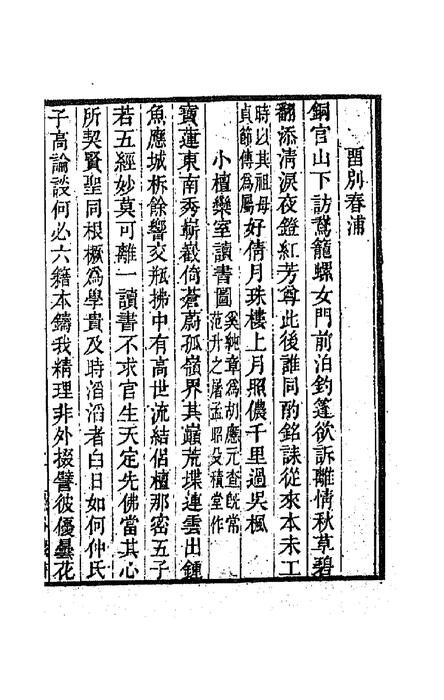 酉別春浦
銅官山下訪鵞籠螺女門前泊釣篷欲訴離情秋草碧
翻添清淚夜鐙紅芳尊此後誰同酌銘誄從來本未工
時以其祖母貞節傳爲屬好倩月珠樓上月照儂千里過吳楓
小檀欒室讀書圖奚純章爲胡應元查旣常范升之屠孟昭投積堂作
寶蓮東南秀嶄巀倚蒼蔚孤嶺界其巓荒堞連雲出鍾
魚應城柝餘響交瓶拂中有高世流結侶檀那密五子
若五經妙莫可離一讀書不求官生天定先佛當其心
所契賢聖同根橛爲學貴及時滔滔者白日如何仲氏
子高論談何必六籍本鑄我精理非外掇譬彼優曇花